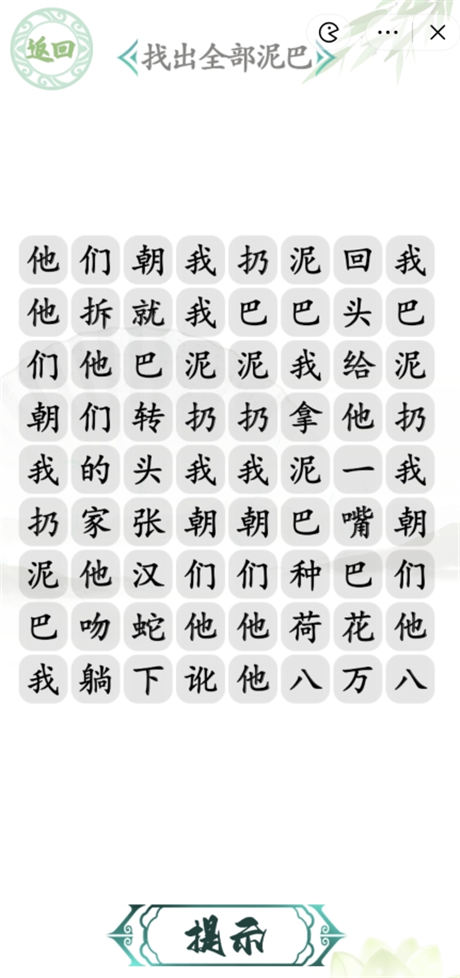 返回
找出全部泥巴
他们朝我扔泥回我
他拆就我巴巴头巴
们他巴泥泥我给泥
朝们转扔扔拿他扔
我的头我我泥一我
扔家张朝朝巴嘴朝
泥他汉们们种巴们
巴吻蛇他他荷花他
我躺下讹他八万八
提示